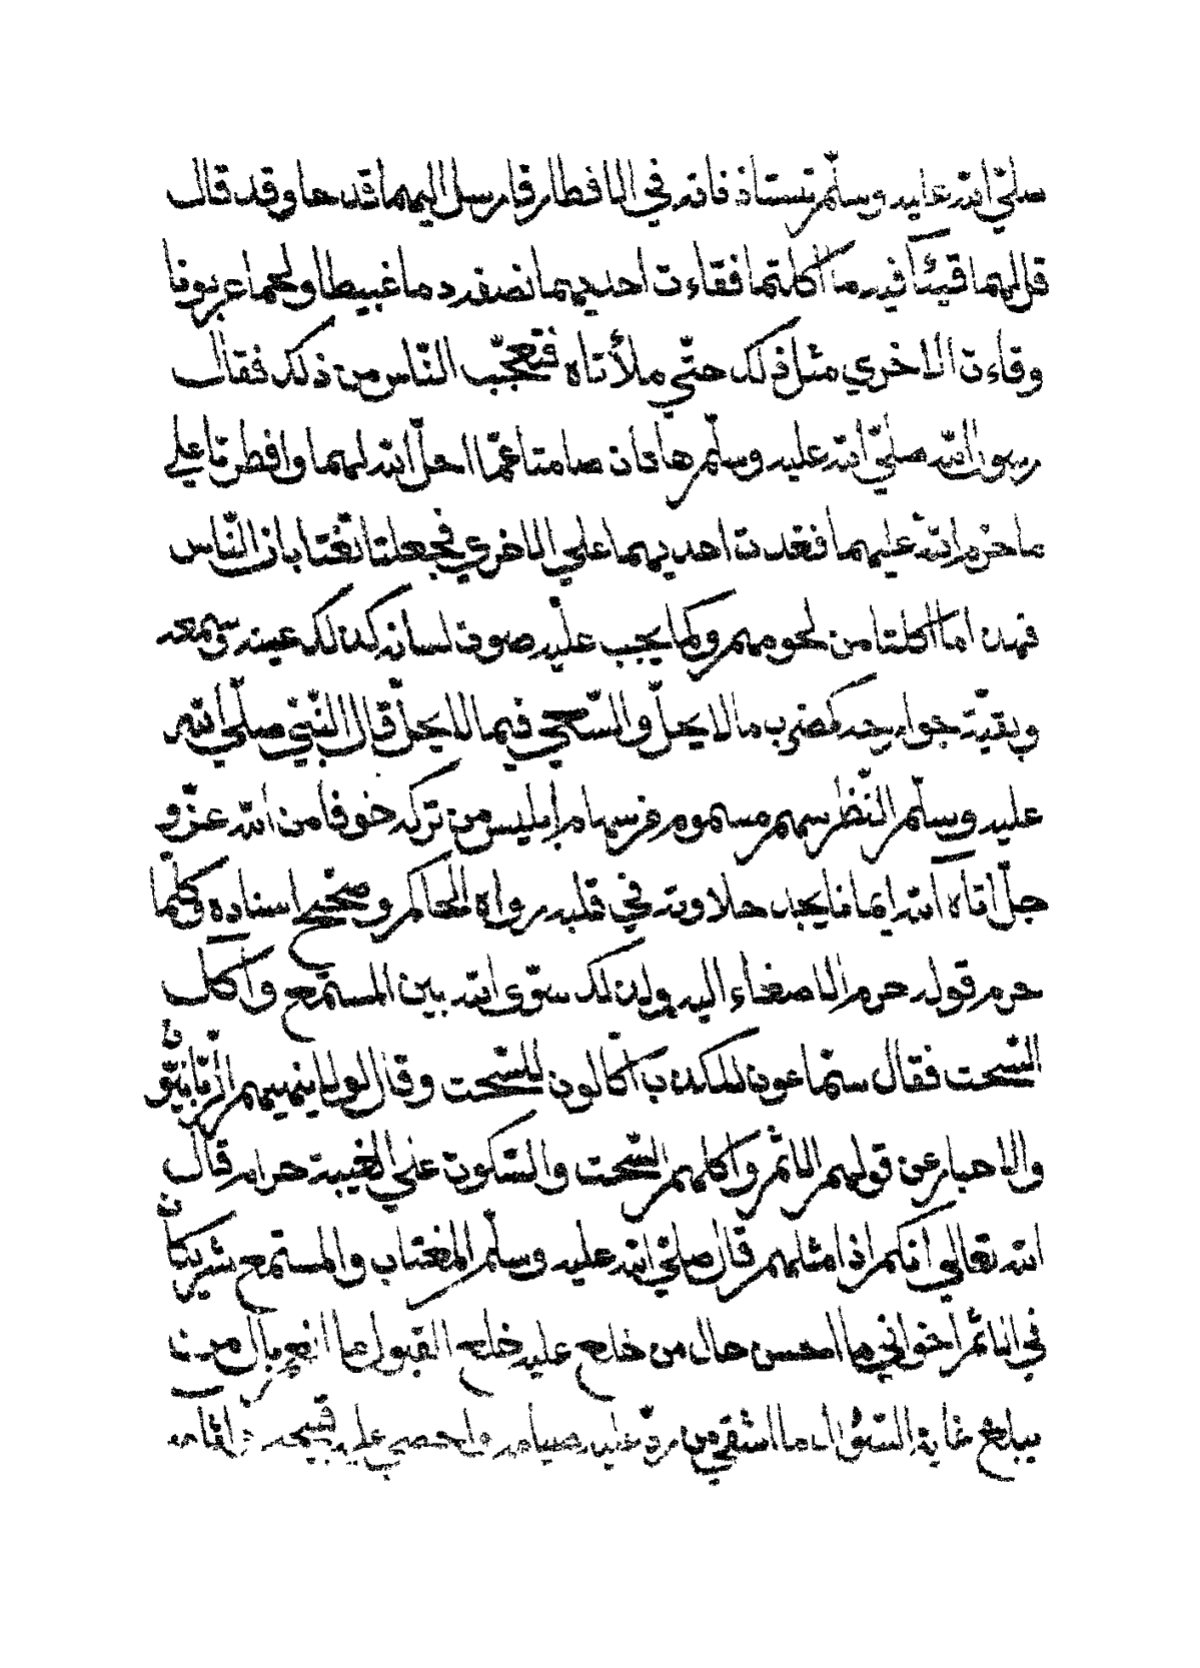 صلّي الله عليه وسلّم تستاذ فانه في الافطار فارسل اليهما قدحا وقد قال
قل لهما قيئا فيه ما اكلتما فقاءت احديهما نصفه دما غبيطا ولحما عريونا
وقاءت الاخري مثل ذلك حتّي ملأتاه فتعجّب النّاس من ذلك فقال
رسول الله صلّي الله عليه وسلّم هاتان صامتا عمّا احلّ الله لهما وافطرتا علي
ما حرّم الله عليهما فقدت احديهما علي الاخري فجعلتا تغتابان النّاس
فهذا ما اكلتا من لحومهم وكما يجب عليه صون لسانه كذلك عينه وسمعه
وبقية جوارحه كضرب ما لا يحلّ والسّعي فيما لا يحلّ قال النّبيّ صلّي الله
عليه وسلّم النّظر سهم مسموم من سهام إبليس من تركه خوفا من الله عزّ و
جلّ اتاه الله ايمانا يجد حلاوته في قلبه رواه الحاكم وصحّح اسناده وكلّما
حرم قوله حرم الاصغاء اليه ولذلك سوّي الله بين المستمع واكل
السّحت فقال سمّاعون للكذب أكّالون للسّحت وقال لولا ينهيهم الرّبّانيّون
والاحبار عن قولهم الاثم واكلهم السّحت والسّكوت علي الغيبة حرام قال
الله تعالي انكم اذا مثلهم قال صلّي الله عليه وسلّم المغتاب والمستمع شريكان
في الاثم اخواني ما احسن حال من خلع عليه خلع القبول ما انعم بال من
يبلغ غاية السّؤال ما اشقي من ردّ عليه صيامه واحصي عليه قبيحه